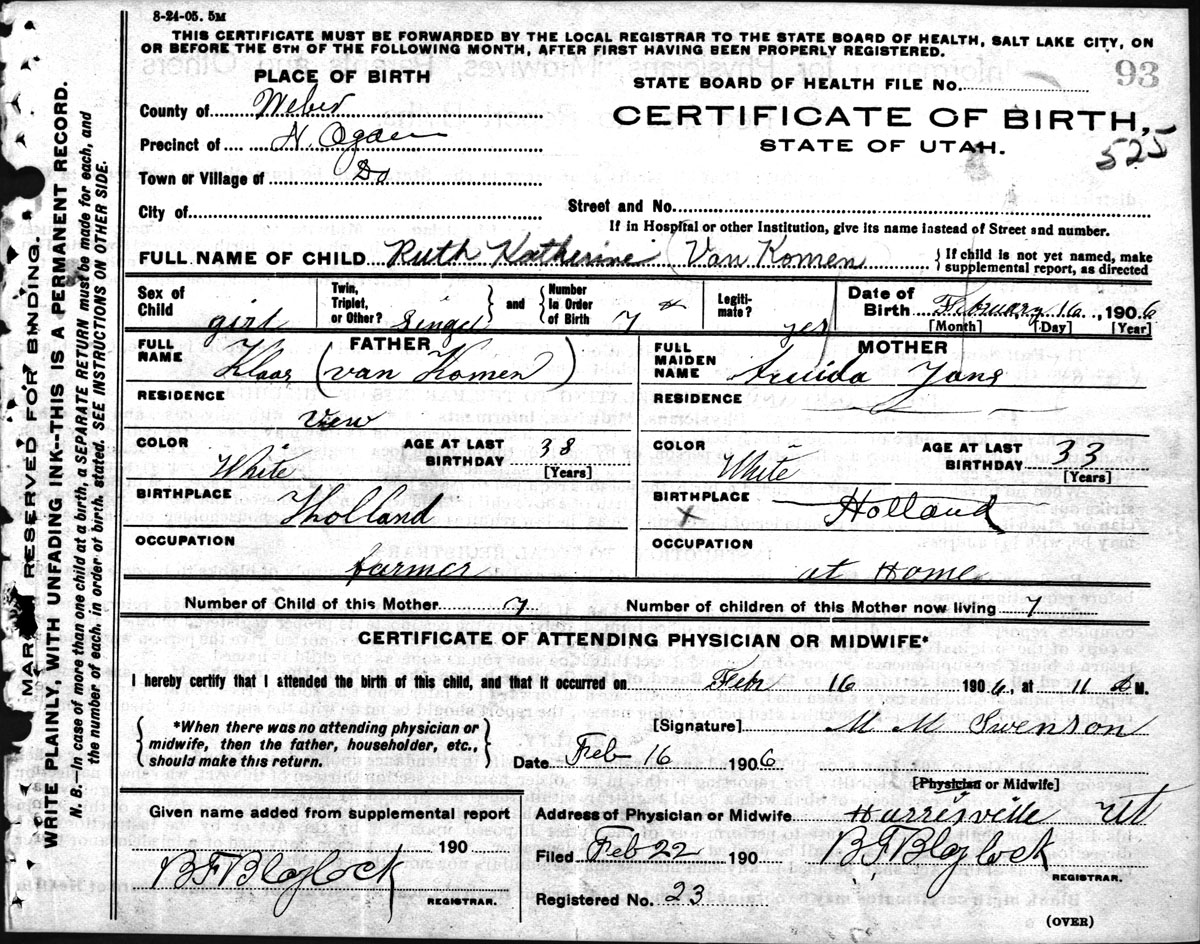 8-24-05. 5M
THIS CERTIFICATE MUST BE FORWARDED BY THE LOCAL REGISTRAR TO THE STATE BOARD OF HEALTH, SALT LAKE CITY, ON
OR BEFORE THE 5TH OF THE FOLLOWING MONTH, AFTER FIRST HAVING BEEN PROPERLY REGISTERED.
MARGIN RESERVED FOR BINDING.
WRITE PLAINLY, WITH UNFADING INK--THIS IS A PERMANENT RECORD.
N. B.--In case of more than one child at birth, a SEPARATE RETURN must be made for each, and
the number of each, in order of birth, stated. SEE INSTRUCTIONS ON OTHER SIDE.
PLACE OF BIRTH
County of Weber
Precinct of N. Ogden
Town or Village of Do
City of
STATE BOARD OF HEALTH FILE No. 93
CERTIFICATE OF BIRTH,
STATE OF UTAH.
525
Street and No.
If in Hospital or other Institution, give its name instead of Street and number.
FULL NAME OF CHILD Ruth Katherine (Van Komen) { If child is not yet named, make
supplemental report, as directed
Sex of Child girl
Twin, Triplet, or Other? Singel } and { Number In Order of Birth 7
Legitimate? yes
Date of Birth February 16, 1906
[Month] [Day] [Year]
FATHER
FULL NAME Klaas (van Komen)
RESIDENCE
view
COLOR White AGE AT LAST BIRTHDAY 38 [Years]
BIRTHPLACE Holland
OCCUPATION farmer
MOTHER
FULL MAIDEN NAME Yans
RESIDENCE
COLOR White AGE AT LAST BIRTHDAY 33 [Years]
BIRTHPLACE x Holland
OCCUPATION at Home
Number of Child of this Mother 7 Number of children of this Mother now living 7
CERTIFICATE OF ATTENDING PHYSICIAN OR MIDWIFE*
I hereby certify that I attended the birth of this child, and that it occurred on Febr 16 1906, at 11 M.
{ *When there was no attending physician or
midwife, then the father, householder, etc.,
should make this return. }
[Signature] M M Swenson
Date Feb 16 1906
[Physician or Midwife]
Given name added from supplemental report
190
B F Blaylock
REGISTRAR.
Address of Physician or Midwife Harrisville Ut
Filed Feb 22 190 B F Blaylock
REGISTRAR.
Registered No. 23
(OVER)